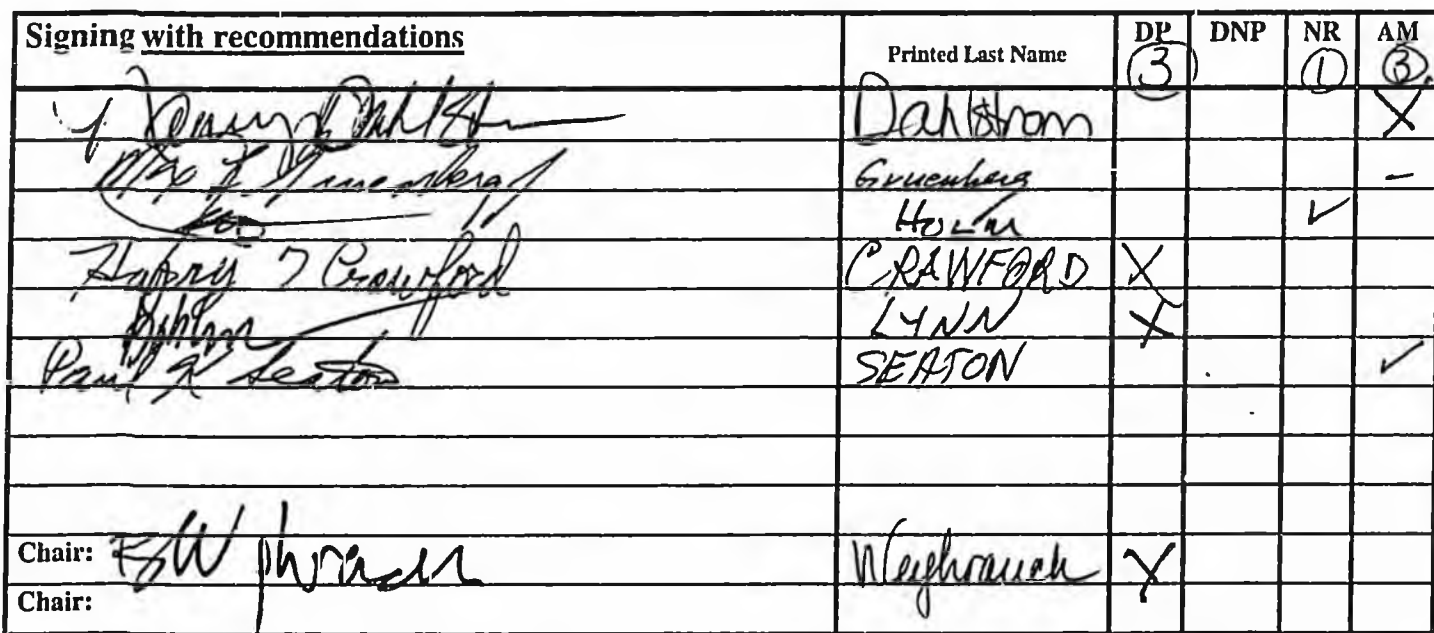 Signing with recommendations Printed Last Name DP DNP NR AM
3 1 3
Dahlstrom X
Gruenberg -
Holm ✓
Harry T Crawford CRAWFORD X
LYNN X
Paul K Seaton SEATON ✓
Chair: Weyhrauch X
Chair: